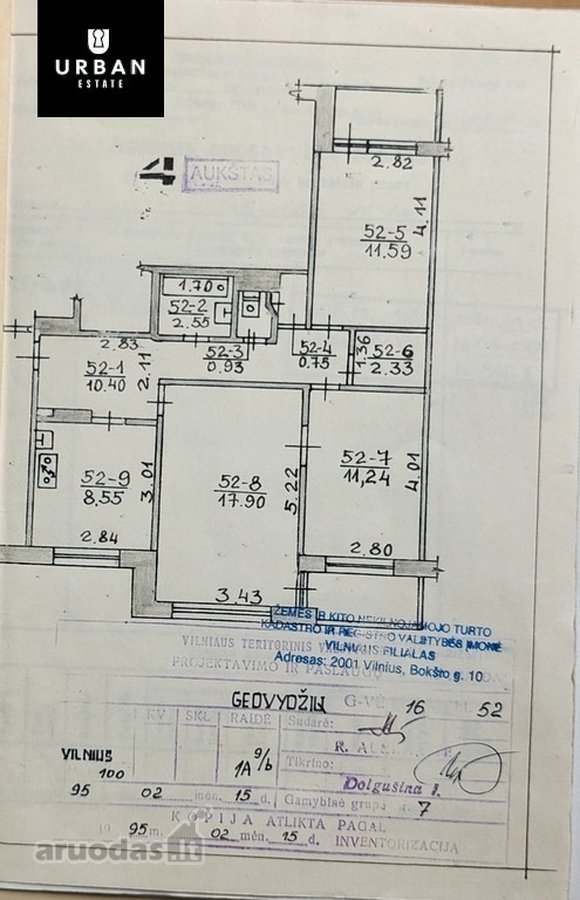 URBAN
ESTATE
4 AUKŠTAS
2.82
52-5
11.59
4.11
1.70
52-2
2.55
2.83
52-1
10.40
2.11
52-3
0.93
52-4
0.75
1.36
52-6
2.33
52-9
8.55
3.01
2.84
52-8
17.90
5.22
3.43
52-7
11,24
4.01
2.80
ŽEMĖS IR KITO NEKILNOJAMOJO TURTO
KADASTRO IR REGISTRO VALSTYBĖS ĮMONĖ
VILNIAUS FILIALAS
Adresas: 2001 Vilnius, Bokšto g. 10
VILNIAUS TERITORINIS
PROJEKTAVIMO IR PASLAUGŲ
GEDVYDŽIŲ G-VĖ 16 52
KV SKL RAIDĖ Sudarė:
VILNIUS
100
1A 9/b
R.
Tikrino:
Dolgušina I.
95 02 mėn. 15 d. Gamybinė grupė 7
KOPIJA ATLIKTA PAGAL
1995 m. 02 mėn. 15 d. INVENTORIZACIJA
aruodas.lt